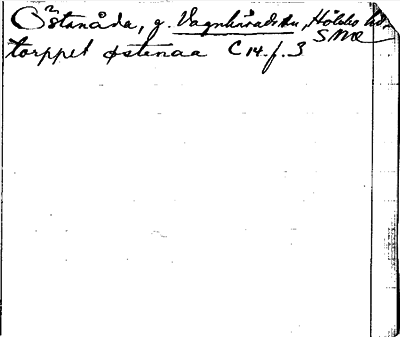 Östanåda, g. Vagnhäradssn, Hölebo hd,
Sml
torppet østenaa C 14. f. 3